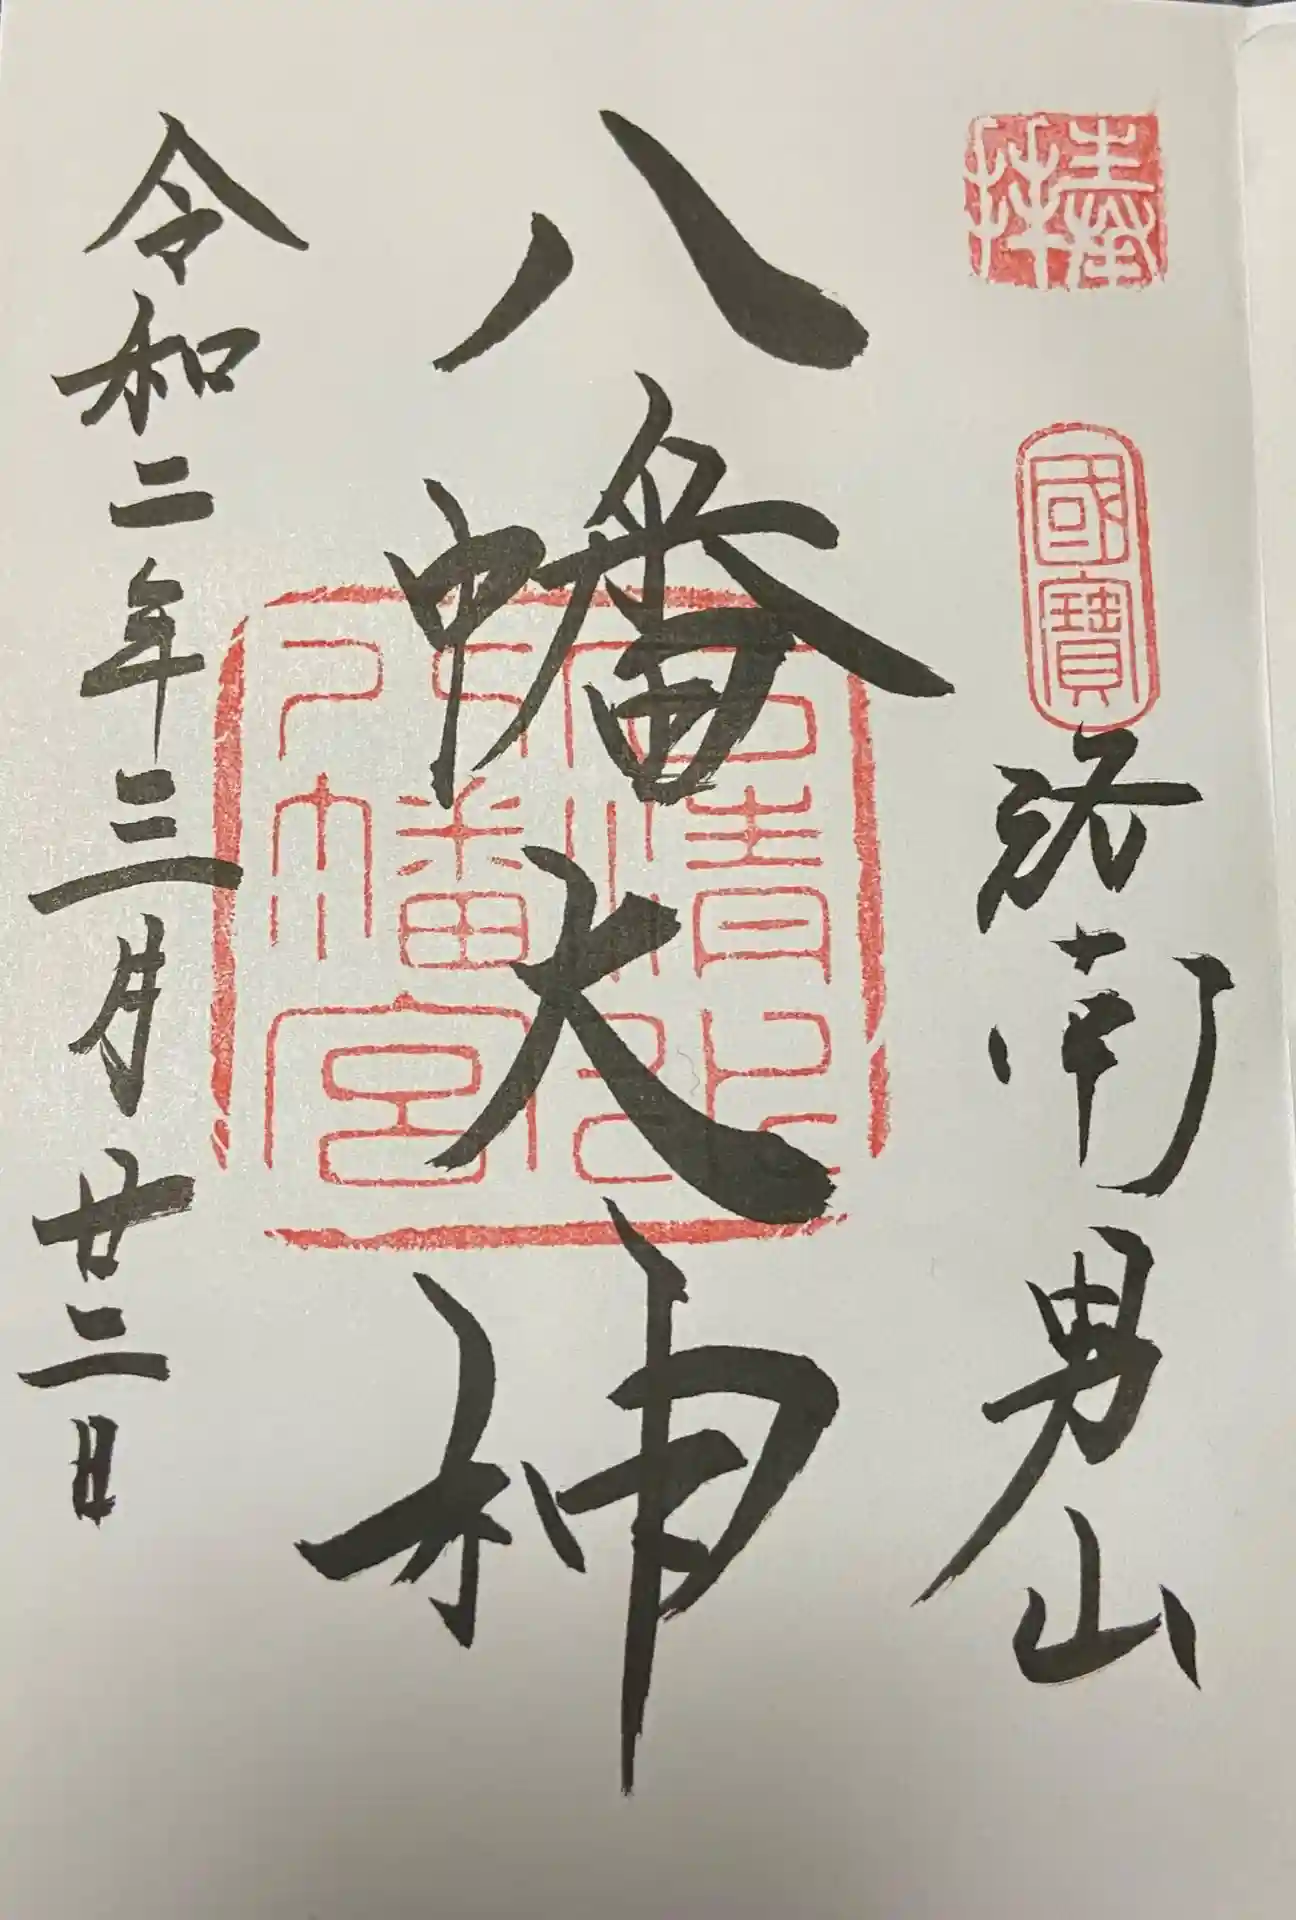 奉拝
國寶
洛南男山
八幡大神
石清水八幡宮
令和二年三月廿二日